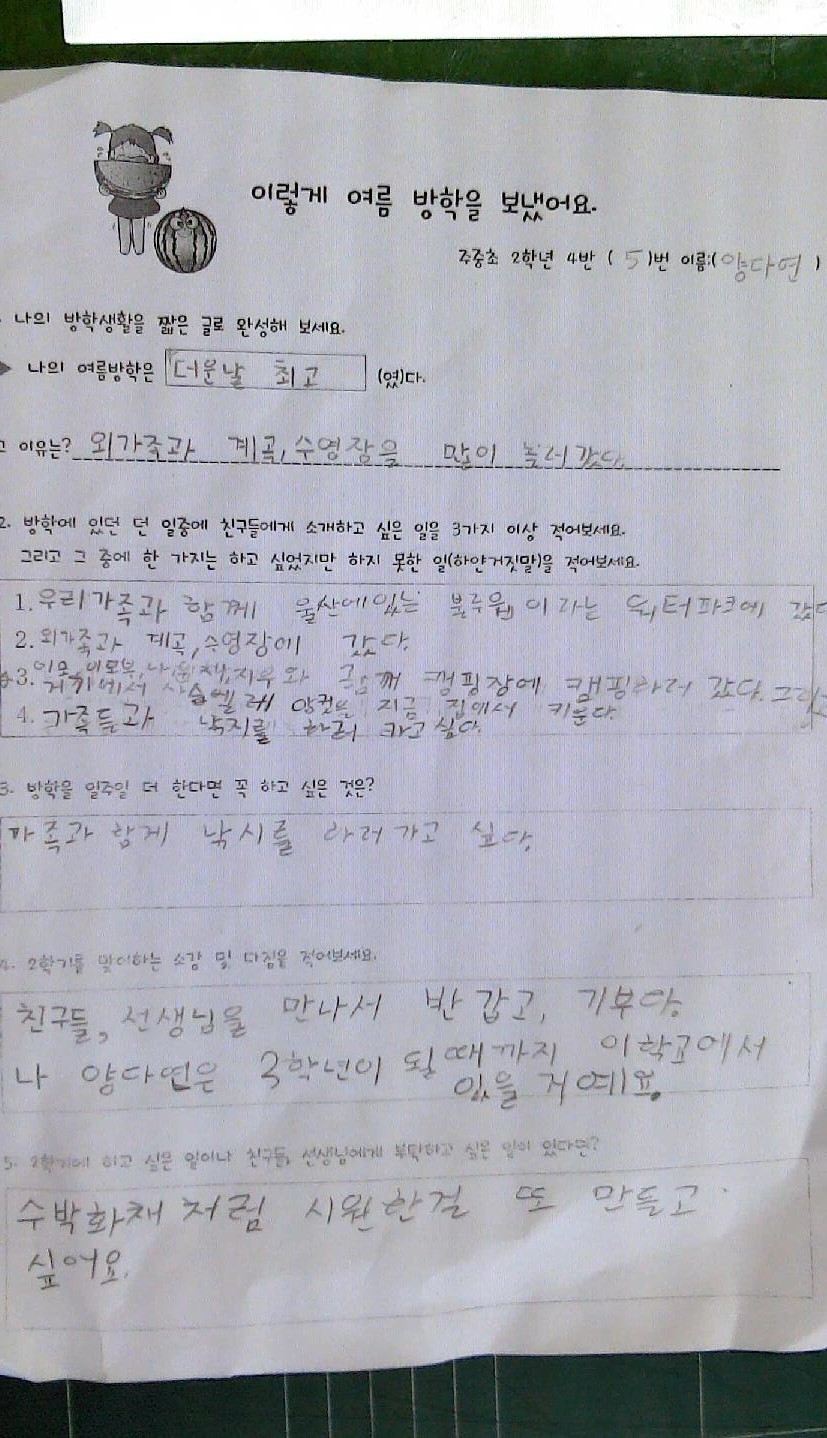 이렇게 여름 방학을 보냈어요.
주중초 2학년 4반 ( 5 )번 이름:( 양다연 )
. 나의 방학생활을 짧은 글로 완성해 보세요.
나의 여름방학은 더운날 최고 (였)다.
고 이유는? 외가족과 계곡,수영장을 많이 놀러갔다.
2. 방학에 있던 던 일중에 친구들에게 소개하고 싶은 일을 3가지 이상 적어보세요.
그리고 그 중에 한 가지는 하고 싶었지만 하지 못한 일(하얀거짓말)을 적어보세요.
1. 우리가족과 함께 울산에있는 이라는 워터파크에 갔다
2. 외가족과 계곡,수영장에 갔다.
3. 이모,이모부, 캠핑장에 캠핑하러 갔다. 그리고
거기에서 지금 집에서 키운다.
4. 가족들과 낙지를 하러 가고싶다.
3. 방학을 일주일 더 한다면 꼭 하고 싶은 것은?
가족과 함게 낚시를 하러가고 싶다.
4. 2학기를 맞이하는 소감 및 다짐을 적어보세요.
친구들, 선생님을 만나서 반갑고, 기부다.
나 양다연은 3학년이 될때까지 이학교에서
있을거예요.
5. 2학기에 하고 싶은 일이나 친구들, 선생님에게 부탁하고 싶은 일이 있다면?
수박화채처럼 시원한걸 또 만들고
싶어요.